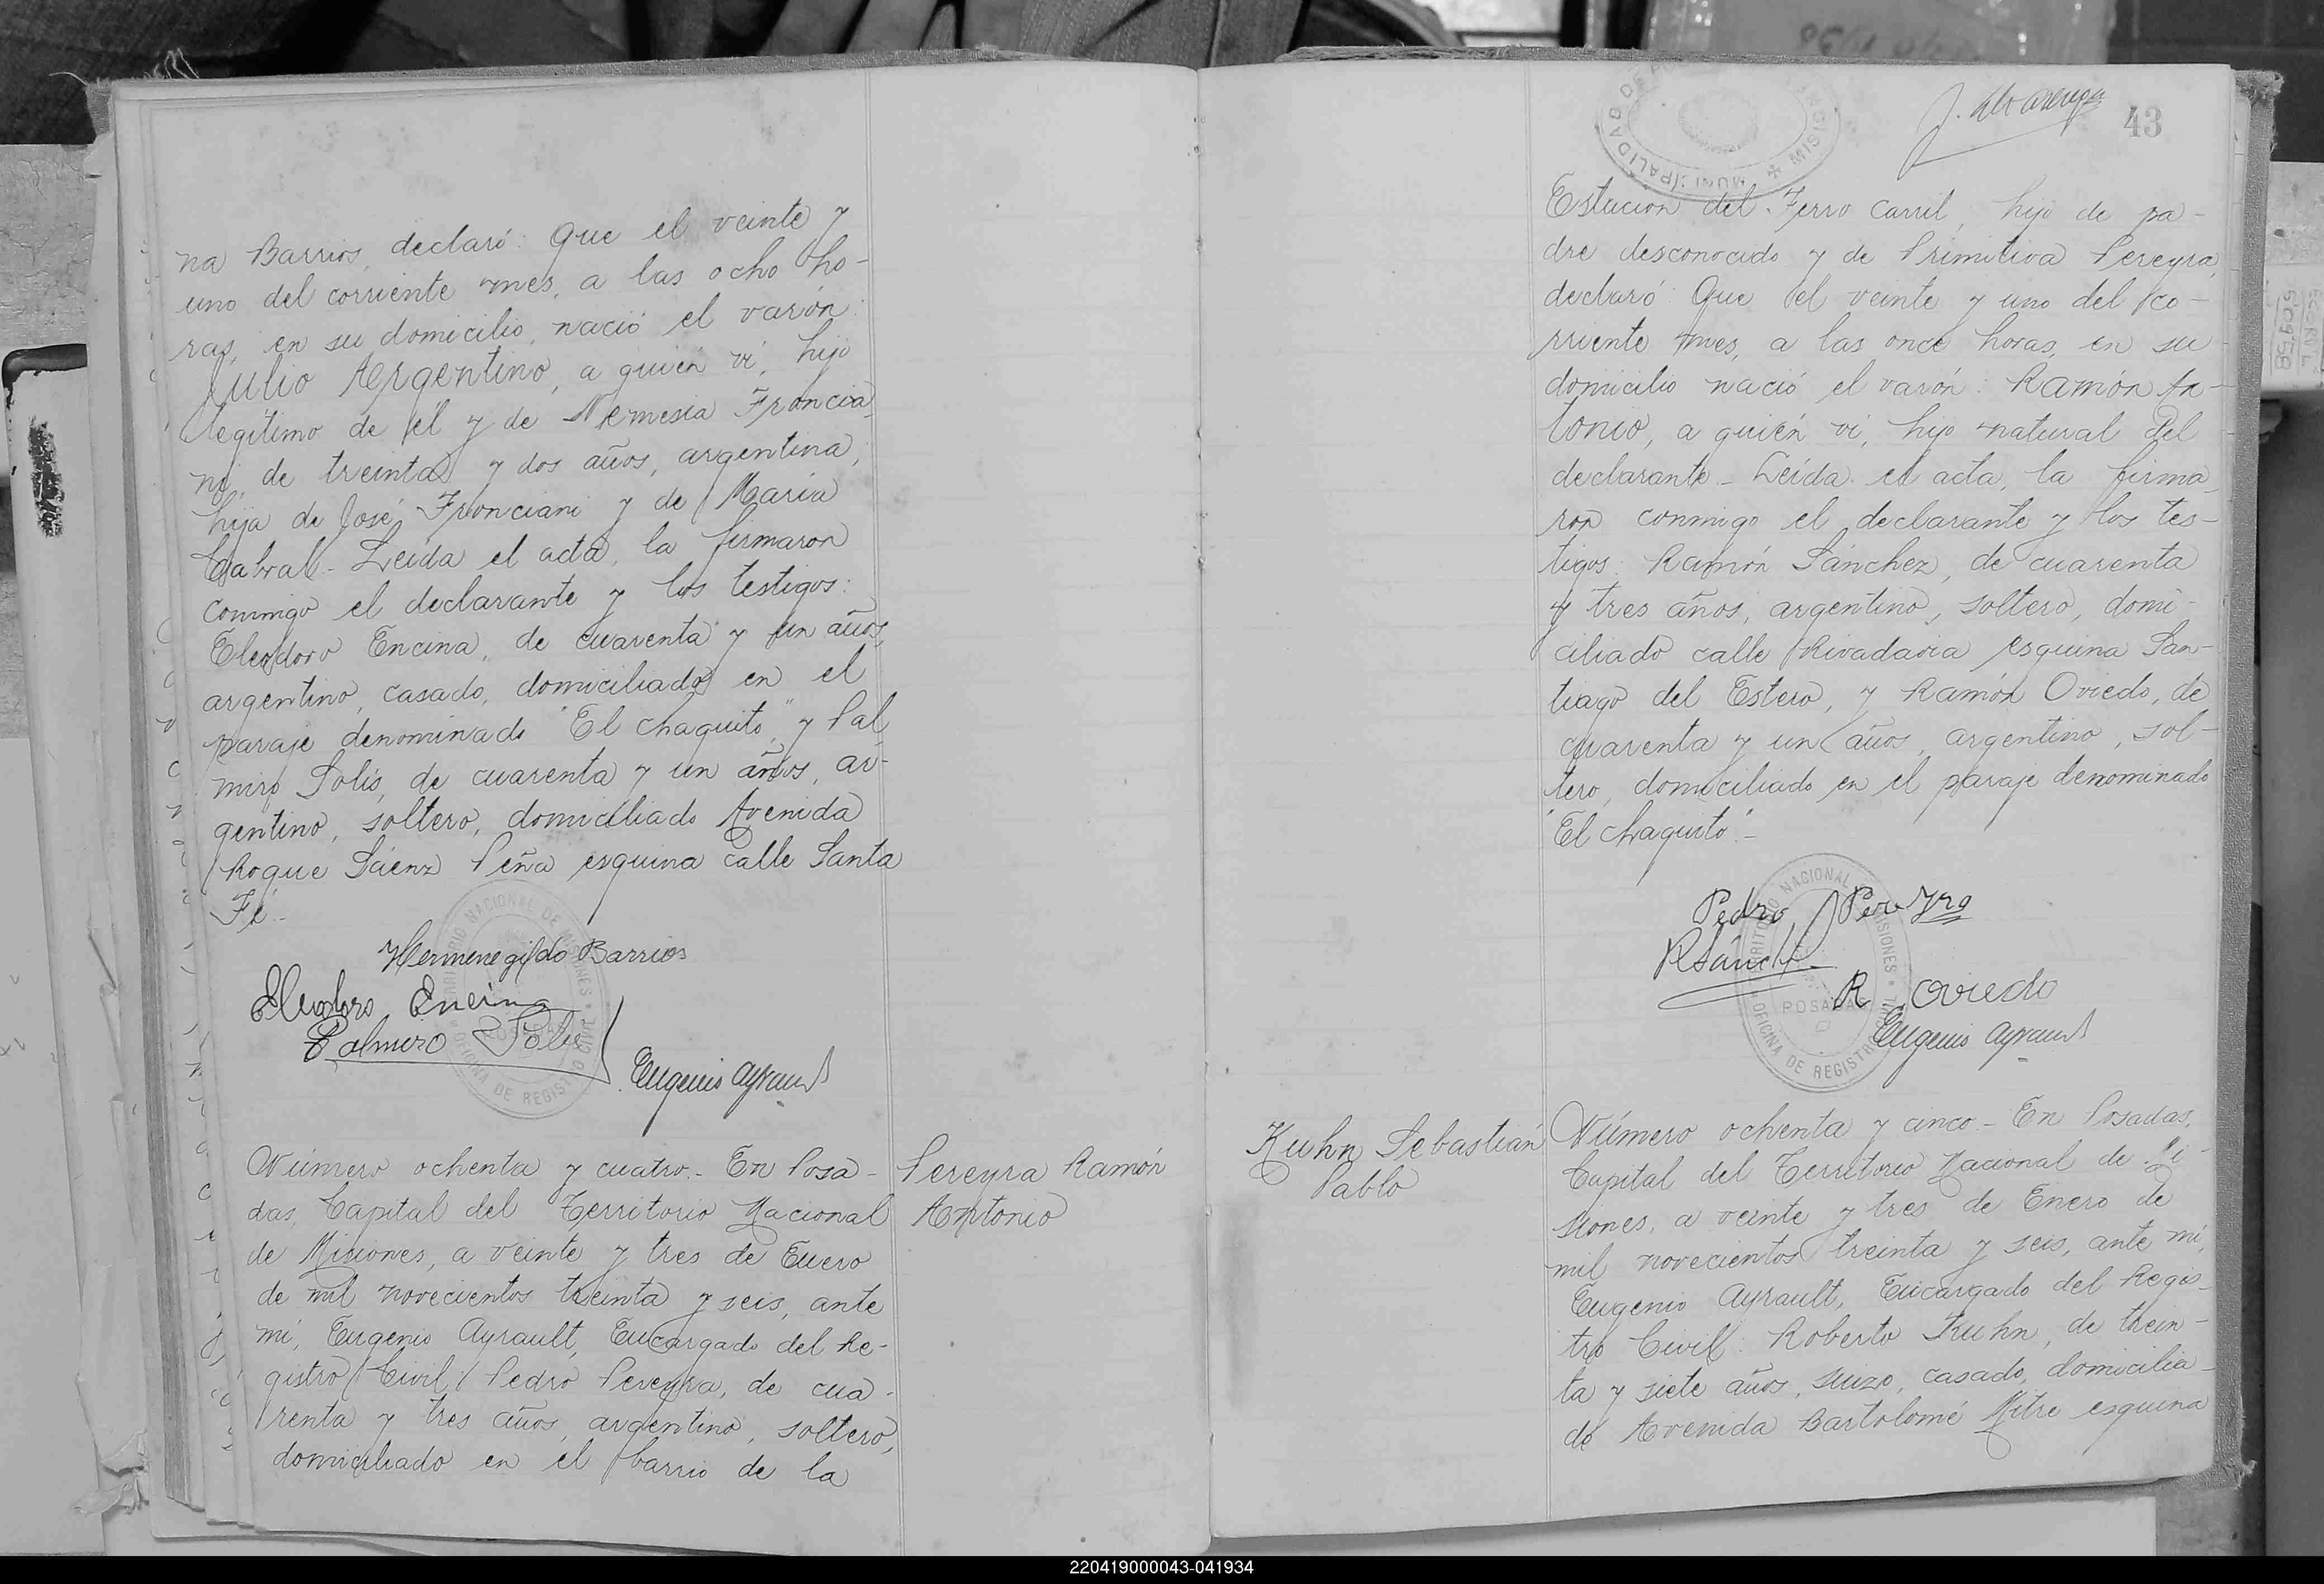 na Barrios, declaró: Que el veinte y
uno del corriente mes, a las ocho ho-
ras, en su domicilio, nació el varón:
Julio Argentino, a quién ví, hijo
legítimo de él y de Nemesia Francia
ni, de treinta y dos años, argentina,
hija de José Franciani y de María
Cabral.- Leída el acta, la firmaron
conmigo el declarante y los testigos:
Eleodoro Encina, de cuarenta y un años,
argentino, casado, domiciliado en el
paraje denominado "El chaquito", y Pal
miro Solis, de cuarenta y un años, ar-
gentino, soltero, domiciliado Avenida
Roque Sáenz Peña esquina calle Santa
Fé.-
Hermenegildo Barrios
Eleodoro Encina
Palmiro Solis
Eugenio Ayrault
TERRITORIO NACIONAL DE MISIONES
OFICINA DE REGISTRO CIVIL
POSADAS
Número ochenta y cuatro.- En Posa-
das, Capital del Territorio Nacional
de Misiones, a veinte y tres de Enero
de mil novecientos treinta y seis, ante
mí, Eugenio Ayrault, Encargado del Re-
gistro Civil: Pedro Pereyra, de cua-
renta y tres años, argentino, soltero,
domiciliado en el barrio de la
Pereyra Ramón
Antonio
43
MUNICIPALIDAD DE
MISIONES
Estación del Ferro Carril, hijo de pa-
dre desconocido y de Primitiva Pereyra,
declaró: Que el veinte y uno del co-
rriente mes, a las once horas, en su
domicilio nació el varón: Ramón An-
tonio, a quién ví, hijo natural del
declarante.- Leída el acta, la firma-
ron conmigo el declarante y los tes-
tigos: Ramón Sánchez, de cuarenta
y tres años, argentino, soltero, domi-
ciliado calle Rivadavia esquina San-
tiago del Estero, y Ramón Oviedo, de
cuarenta y un años, argentino, sol-
tero, domiciliado en el paraje denominado
"El chaquito".-
Pedro Pereyra
RSánchez
R Oviedo
Eugenio Ayrault
TERRITORIO NACIONAL DE MISIONES
OFICINA DE REGISTRO CIVIL
POSADAS
Kuhn Sebastián
Pablo
Número ochenta y cinco.- En Posadas,
Capital del Territorio Nacional de Mi-
siones, a veinte y tres de Enero de
mil novecientos treinta y seis, ante mí,
Eugenio Ayrault, Encargado del Regis-
tro Civil: Roberto Kuhn, de trein-
ta y siete años, suizo, casado, domicilia-
do Avenida Bartolomé Mitre esquina
220419000043-041934